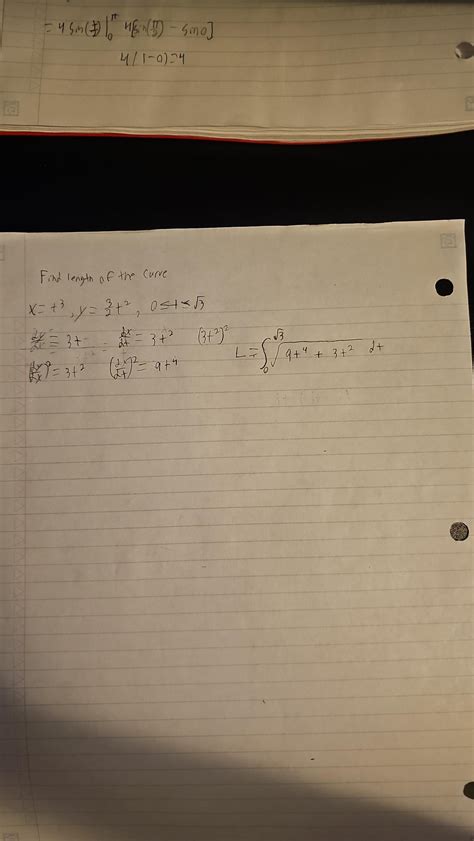 = 4 sin(t/2)|₀^π 4[sin(π/2) - sin0]
4(1-0)=4
Find length of the curve
x=t³, y=3/2t², 0≤t≤√3
= 3t dx/dt = 3t² (3t²)²
= 3t² (dx/dt)² = 9t⁴ L = ∫₀^√3 √9t⁴ + 3t² dt